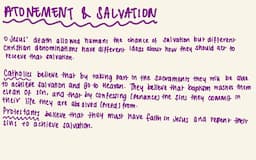 ATONEMENT & SALVATION
○ Jesus' death allowed humans the chance of salvation but different
christian denominations have different ideas about how they should act to
receive that salvation.
Catholics believe that by taking part in the sacraments they will be able
to achieve salvation and go to heaven. They believe that baptism washes them
clean of sin, and that by confessing (penance) the sins they commit in
their life they are absolved (freed) from.
Protestants believe that they must have faith in Jesus and repent their
sins to achieve salvation.